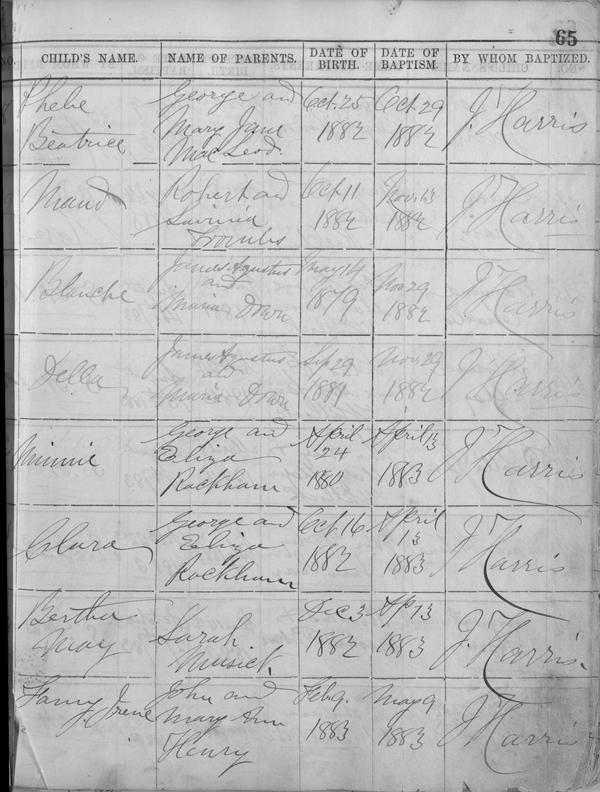 65
NO. CHILD'S NAME. NAME OF PARENTS. DATE OF BIRTH. DATE OF BAPTISM. BY WHOM BAPTIZED.
Phebe Beatrice George and Mary Jane MacLeod. Oct. 25 1882 Oct. 29 1882 J. Harris
Maud Robert and Lavinia Oct 11 1882 Nov. 13 1882 J. Harris
Blanche James Agustus and Maria Down May 14 1879 Nov 29 1882 J. Harris
Della James Agustus and Maria Down Sep 29 1881 Nov 29 1882 J. Harris
Minnie George and Eliza Rockham April 24 1880 April 13 1883 J. Harris
Clara George and Eliza Rockham Oct. 16 1882 April 13 1883 J. Harris
Bertha May Sarah Musick. Dec 3 1882 Ap 13 1883 J. Harris.
Fanny Irene John and Mary Ann Henry Feb 9. 1883 May 9 1883 J Harris